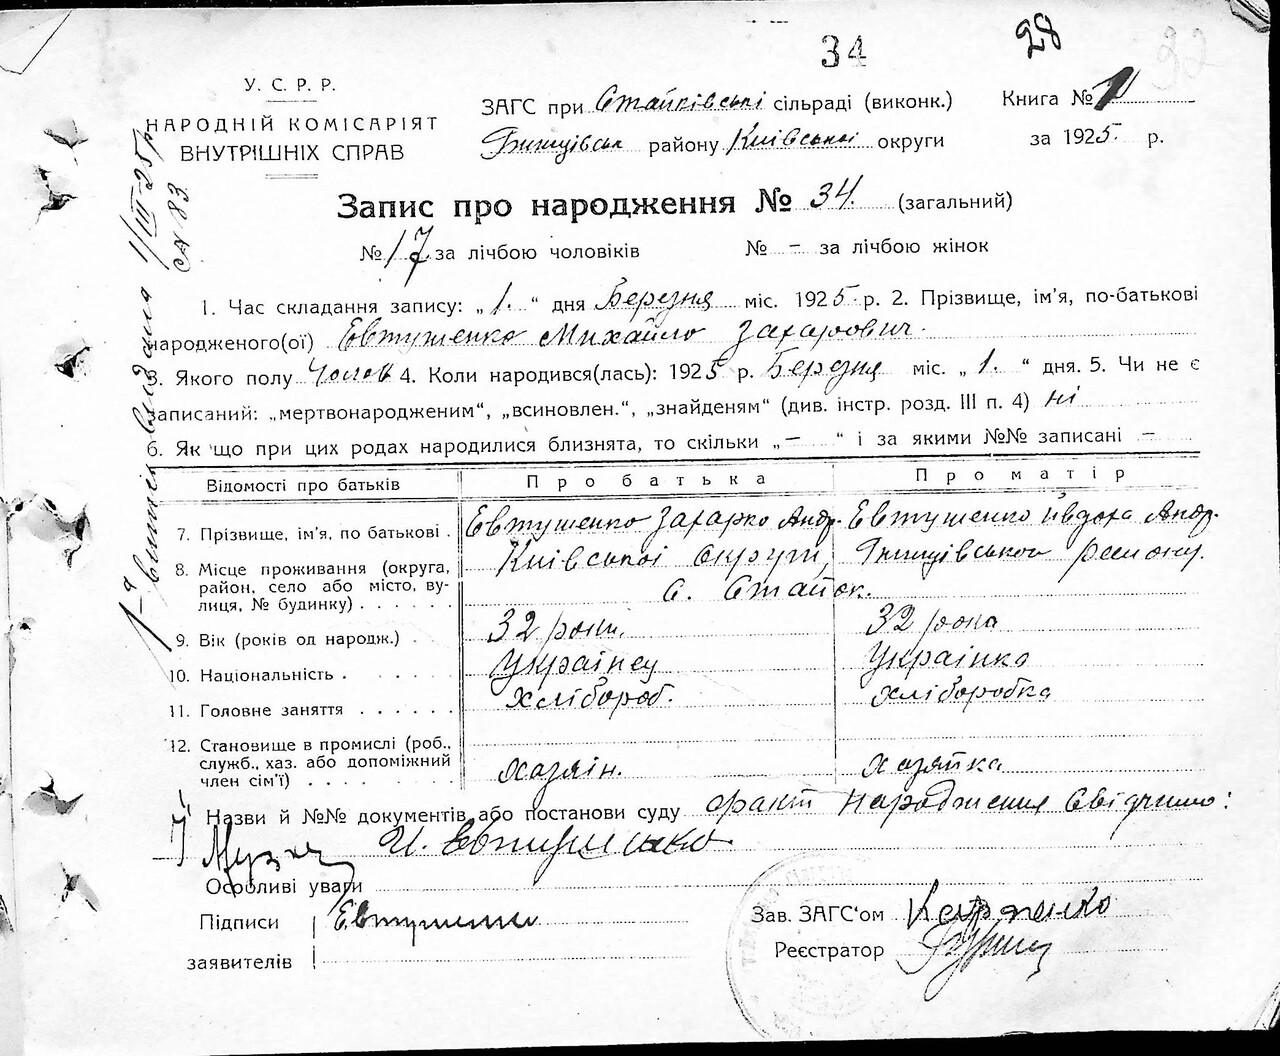 34
28
32
У. С. Р. Р.
НАРОДНІЙ КОМІСАРІЯТ
ВНУТРІШНІХ СПРАВ
ЗАГС при Стайківські сільраді (виконк.)
Книга № 1
району Київської округи
за 1925 р.
Запис про народження № 34. (загальний)
№ 17 за лічбою чоловіків № – за лічбою жінок
1. Час складання запису: „1.“ дня Березня міс. 1925 р. 2. Прізвище, ім'я, по-батькові
народженого(ої) Евтушенко Михайло Захарович.
3. Якого полу Чолов 4. Коли народився(лась): 1925 р. Березня міс. „1.“ дня. 5. Чи не є
записаний: „мертвонародженим“, „всиновлен.“, „знайденям“ (див. інстр. розд. III п. 4) ні
6. Як що при цих родах народилися близнята, то скільки „–“ і за якими №№ записані –
Відомості про батьків
Про батька
Про матір
7. Прізвище, ім'я, по батькові . Евтушенко Захарко Андр. Евтушенко Ивдоха Андр.
8. Місце проживання (округа, район, село або місто, вулиця, № будинку) . . . . . .
Київської округи, району.
с. Стайок.
9. Вік (років од народж.) . 32 роки. 32 рока
10. Національність . . . . . . Українец Українка
11. Головне заняття . . . . . . Хлібороб. хліборобка
12. Становище в промислі (роб., служб., хаз. або допоміжний член сім'ї) . . . . . хазяін. хазяйка
Назви й №№ документів або постанови суду факт народження свідчимо:
И. Евтушенко
Особливі уваги
Підписи
заявителів
Евтушенко
Зав. ЗАГС'ом Карпенко
Реєстратор
1/III-25 р.
№ 83